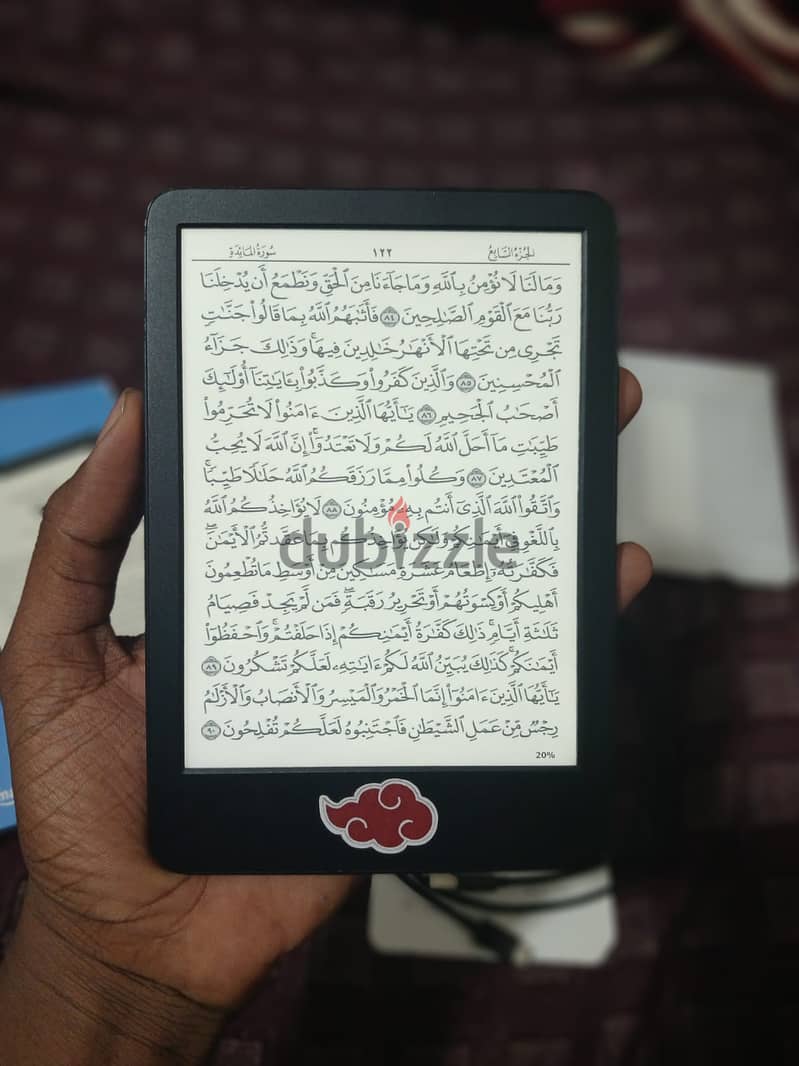 الجزء السابع ١٢٢ سورة المائدة
وَمَا لَنَا لَا نُؤْمِنُ بِٱللَّهِ وَمَا جَآءَنَا مِنَ ٱلْحَقِّ وَنَطْمَعُ أَن يُدْخِلَنَا
رَبُّنَا مَعَ ٱلْقَوْمِ ٱلصَّـٰلِحِينَ ٨٤ فَأَثَـٰبَهُمُ ٱللَّهُ بِمَا قَالُوا۟ جَنَّـٰتٍ
تَجْرِى مِن تَحْتِهَا ٱلْأَنْهَـٰرُ خَـٰلِدِينَ فِيهَا ۚ وَذَٰلِكَ جَزَآءُ
ٱلْمُحْسِنِينَ ٨٥ وَٱلَّذِينَ كَفَرُوا۟ وَكَذَّبُوا۟ بِـَٔايَـٰتِنَآ أُو۟لَـٰٓئِكَ
أَصْحَـٰبُ ٱلْجَحِيمِ ٨٦ يَـٰٓأَيُّهَا ٱلَّذِينَ ءَامَنُوا۟ لَا تُحَرِّمُوا۟
طَيِّبَـٰتِ مَآ أَحَلَّ ٱللَّهُ لَكُمْ وَلَا تَعْتَدُوٓا۟ ۚ إِنَّ ٱللَّهَ لَا يُحِبُّ
ٱلْمُعْتَدِينَ ٨٧ وَكُلُوا۟ مِمَّا رَزَقَكُمُ ٱللَّهُ حَلَـٰلًا طَيِّبًا ۚ
وَٱتَّقُوا۟ ٱللَّهَ ٱلَّذِىٓ أَنتُم بِهِۦ مُؤْمِنُونَ ٨٨ لَا يُؤَاخِذُكُمُ ٱللَّهُ
بِٱللَّغْوِ فِىٓ أَيْمَـٰنِكُمْ وَلَـٰكِن يُؤَاخِذُكُم بِمَا عَقَّدتُّمُ ٱلْأَيْمَـٰنَ ۖ
dubizzle
فَكَفَّـٰرَتُهُۥٓ إِطْعَامُ عَشَرَةِ مَسَـٰكِينَ مِنْ أَوْسَطِ مَا تُطْعِمُونَ
أَهْلِيكُمْ أَوْ كِسْوَتُهُمْ أَوْ تَحْرِيرُ رَقَبَةٍ ۖ فَمَن لَّمْ يَجِدْ فَصِيَامُ
ثَلَـٰثَةِ أَيَّامٍ ۚ ذَٰلِكَ كَفَّـٰرَةُ أَيْمَـٰنِكُمْ إِذَا حَلَفْتُمْ ۚ وَٱحْفَظُوٓا۟
أَيْمَـٰنَكُمْ ۚ كَذَٰلِكَ يُبَيِّنُ ٱللَّهُ لَكُمْ ءَايَـٰتِهِۦ لَعَلَّكُمْ تَشْكُرُونَ ٨٩
يَـٰٓأَيُّهَا ٱلَّذِينَ ءَامَنُوٓا۟ إِنَّمَا ٱلْخَمْرُ وَٱلْمَيْسِرُ وَٱلْأَنصَابُ وَٱلْأَزْلَـٰمُ
رِجْسٌ مِّنْ عَمَلِ ٱلشَّيْطَـٰنِ فَٱجْتَنِبُوهُ لَعَلَّكُمْ تُفْلِحُونَ ٩٠
20%